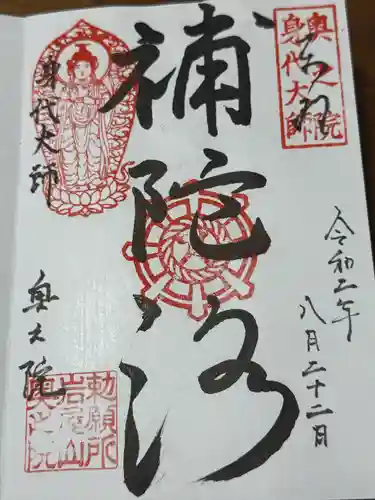 奥之院
身代大師
奉拝
令和二年
八月二十二日
補陀洛
身代大師
奥之院
勅願所
岩屋山
奥之院